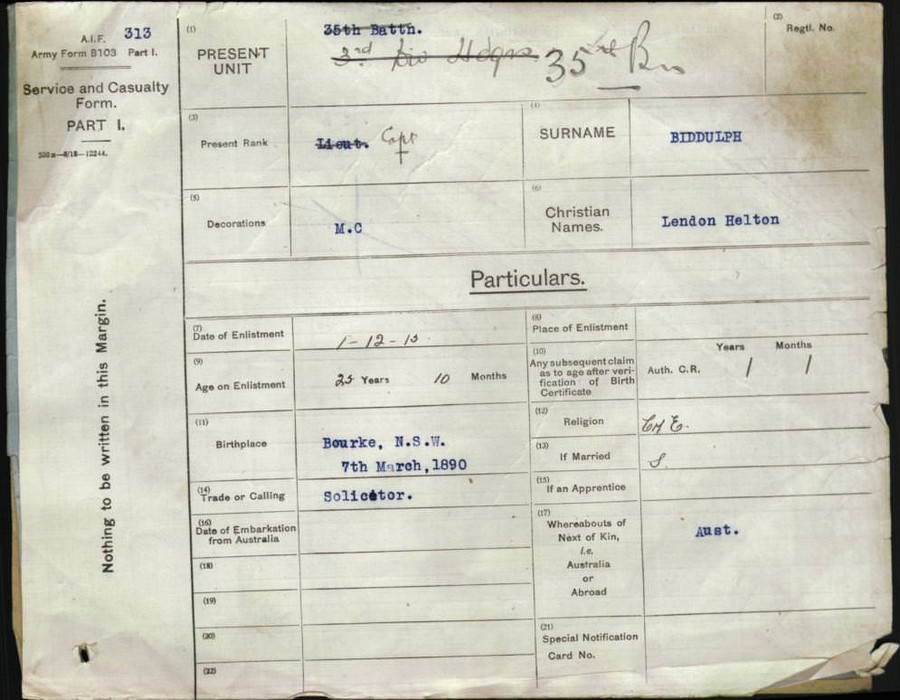 A.I.F. 313
Army Form B103 Part I.
Service and Casualty
Form.
PART I.
200m—8/18—12244.
Nothing to be written in this Margin.
(1)
PRESENT
UNIT
35th Battn.
3rd Div Hdqrs 35th Bn
(2)
Regtl. No.
(3)
Present Rank
Lieut. Capt
(4)
SURNAME
BIDDULPH
(5)
Decorations
M.C
(6)
Christian
Names.
Lendon Helton
Particulars.
(7)
Date of Enlistment
1-12-15
(8)
Place of Enlistment
(9)
Age on Enlistment
25 Years 10 Months
(10)
Any subsequent claim
as to age after veri-
fication of Birth
Certificate
Years Months
Auth. C.R. / /
(11)
Birthplace
Bourke, N.S.W.
7th March, 1890
(12)
Religion
C of E.
(13)
If Married
S.
(14)
Trade or Calling
Solicitor.
(15)
If an Apprentice
(16)
Date of Embarkation
from Australia
(17)
Whereabouts of
Next of Kin,
i.e.
Australia
or
Abroad
Aust.
(18)
(19)
(20)
(21)
Special Notification
Card No.
(22)